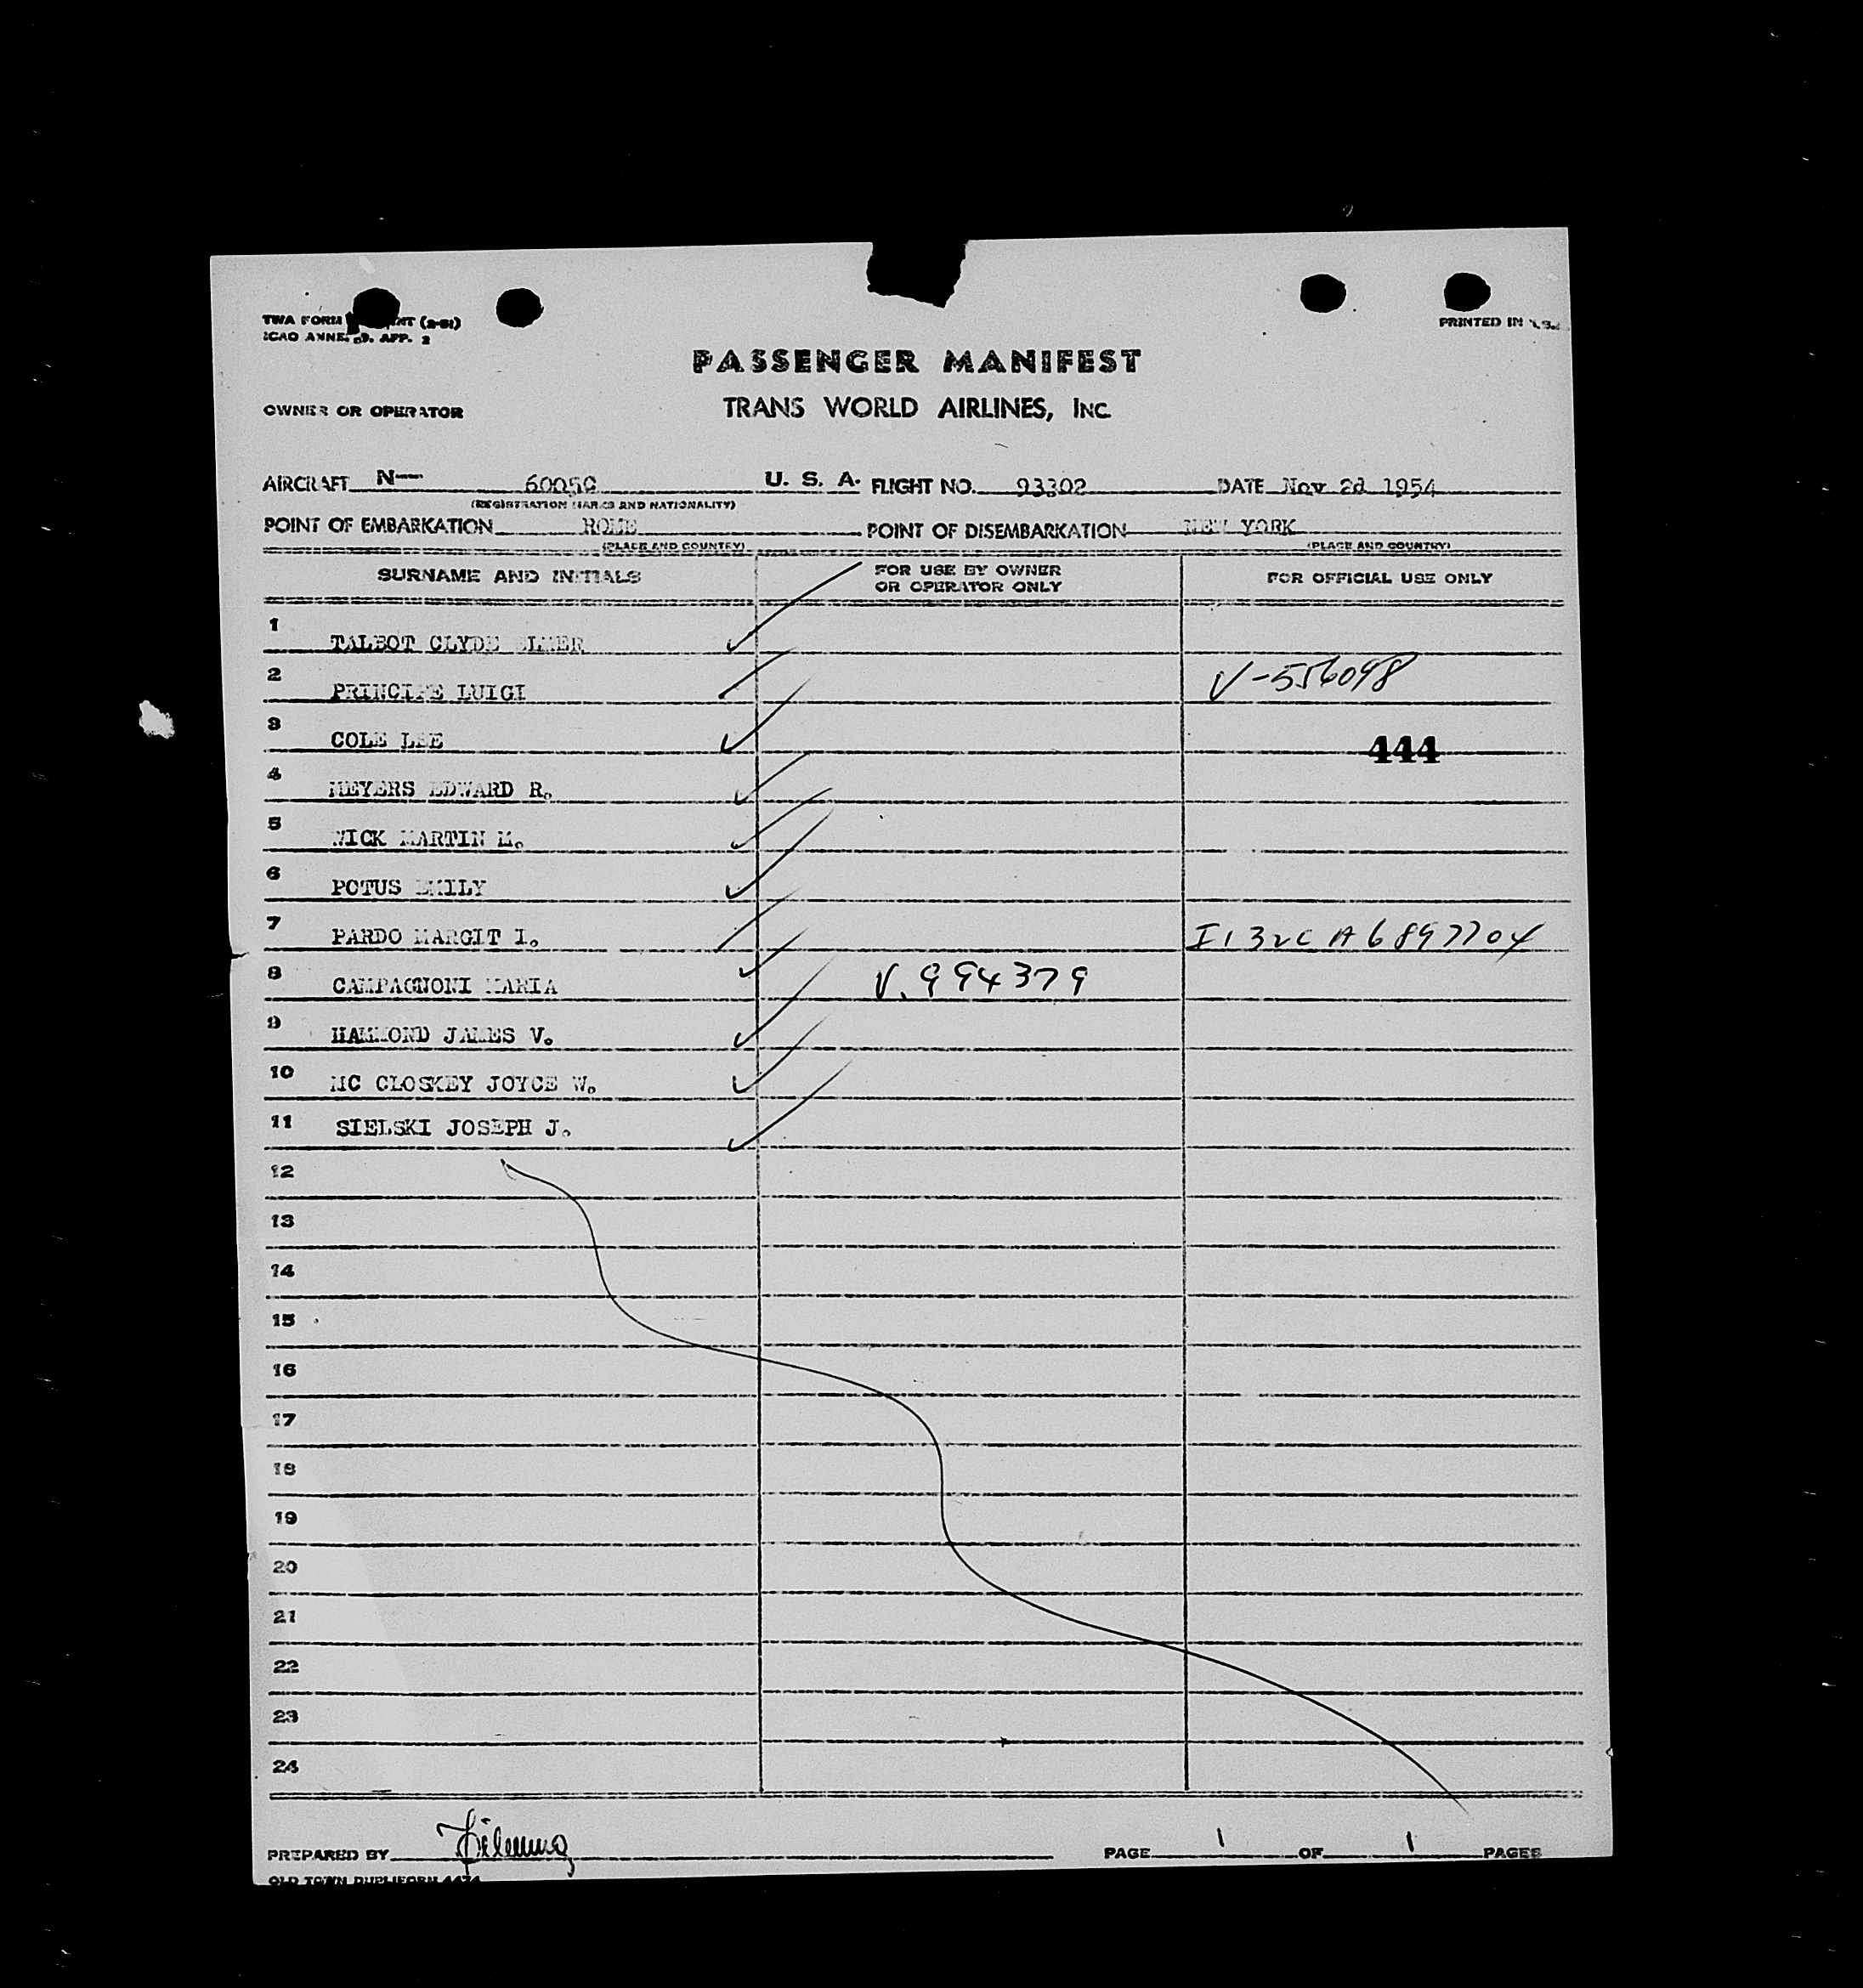 TWA FORM NT (2-51)
ICAO ANNE. 9. APP. 2
PRINTED IN
PASSENGER MANIFEST
OWNER OR OPERATOR
TRANS WORLD AIRLINES, INC.
AIRCRAFT N— U. S. A. FLIGHT NO. 93302 DATE Nov 2d 1954
(REGISTRATION MARKS AND NATIONALITY)
POINT OF EMBARKATION ROME POINT OF DISEMBARKATION NEW YORK
(PLACE AND COUNTRY) (PLACE AND COUNTRY)
SURNAME AND INITIALS FOR USE BY OWNER OR OPERATOR ONLY FOR OFFICIAL USE ONLY
1 TALBOT CLYDE ELMER
2 PRINCIPE LUIGI V-556098
3 COLE LEE 444
4 MEYERS EDWARD R.
5 WICK MARTIN M.
6 POTUS EMILY
7 PARDO MARGIT I. I132C A6897704
8 CAMPAGNONI MARIA V. 994379
9 HAMMOND JAMES V.
10 MC CLOSKEY JOYCE W.
11 SIELSKI JOSEPH J.
12
13
14
15
16
17
18
19
20
21
22
23
24
PREPARED BY PAGE 1 OF 1 PAGES
OLD TOWN DUPLIFORM 4474